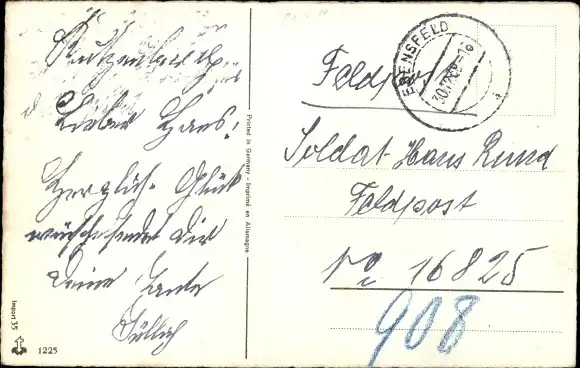 Lieber Hans!
Herzlich. Glück
wünsche sendet Dir
Deine Tante
Printed in Germany - Imprimé en Allemagne
Import 35
1225
EBENSFELD
Feldpost
Soldat Hans Rund
Feldpost
No 16825
908